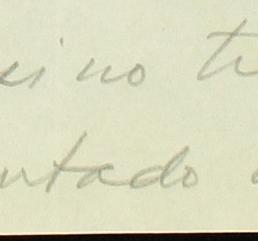 sino tr
ntado